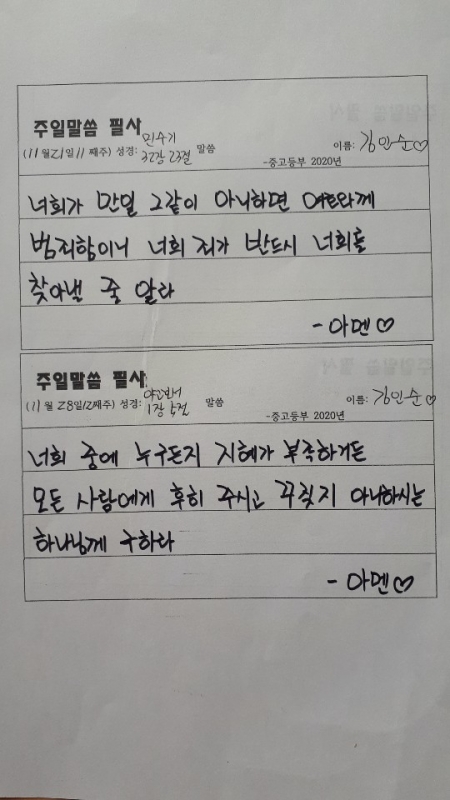 주일말씀 필사 민수기
(11월21일11째주) 성경: 32장 23절 말씀 이름: 김민순♡
-중고등부 2020년
너희가 만일 그같이 아니하면 여호와께
범죄함이니 너희 죄가 반드시 너희를
찾아낼 줄 알라
- 아멘♡
주일말씀 필사 야고보서
(11월 28일12째주) 성경: 1장 5절 말씀 이름: 김민순♡
-중고등부 2020년
너희 중에 누구든지 지혜가 부족하거든
모든 사람에게 후히 주시고 꾸짖지 아니하시는
하나님께 구하라
- 아멘♡